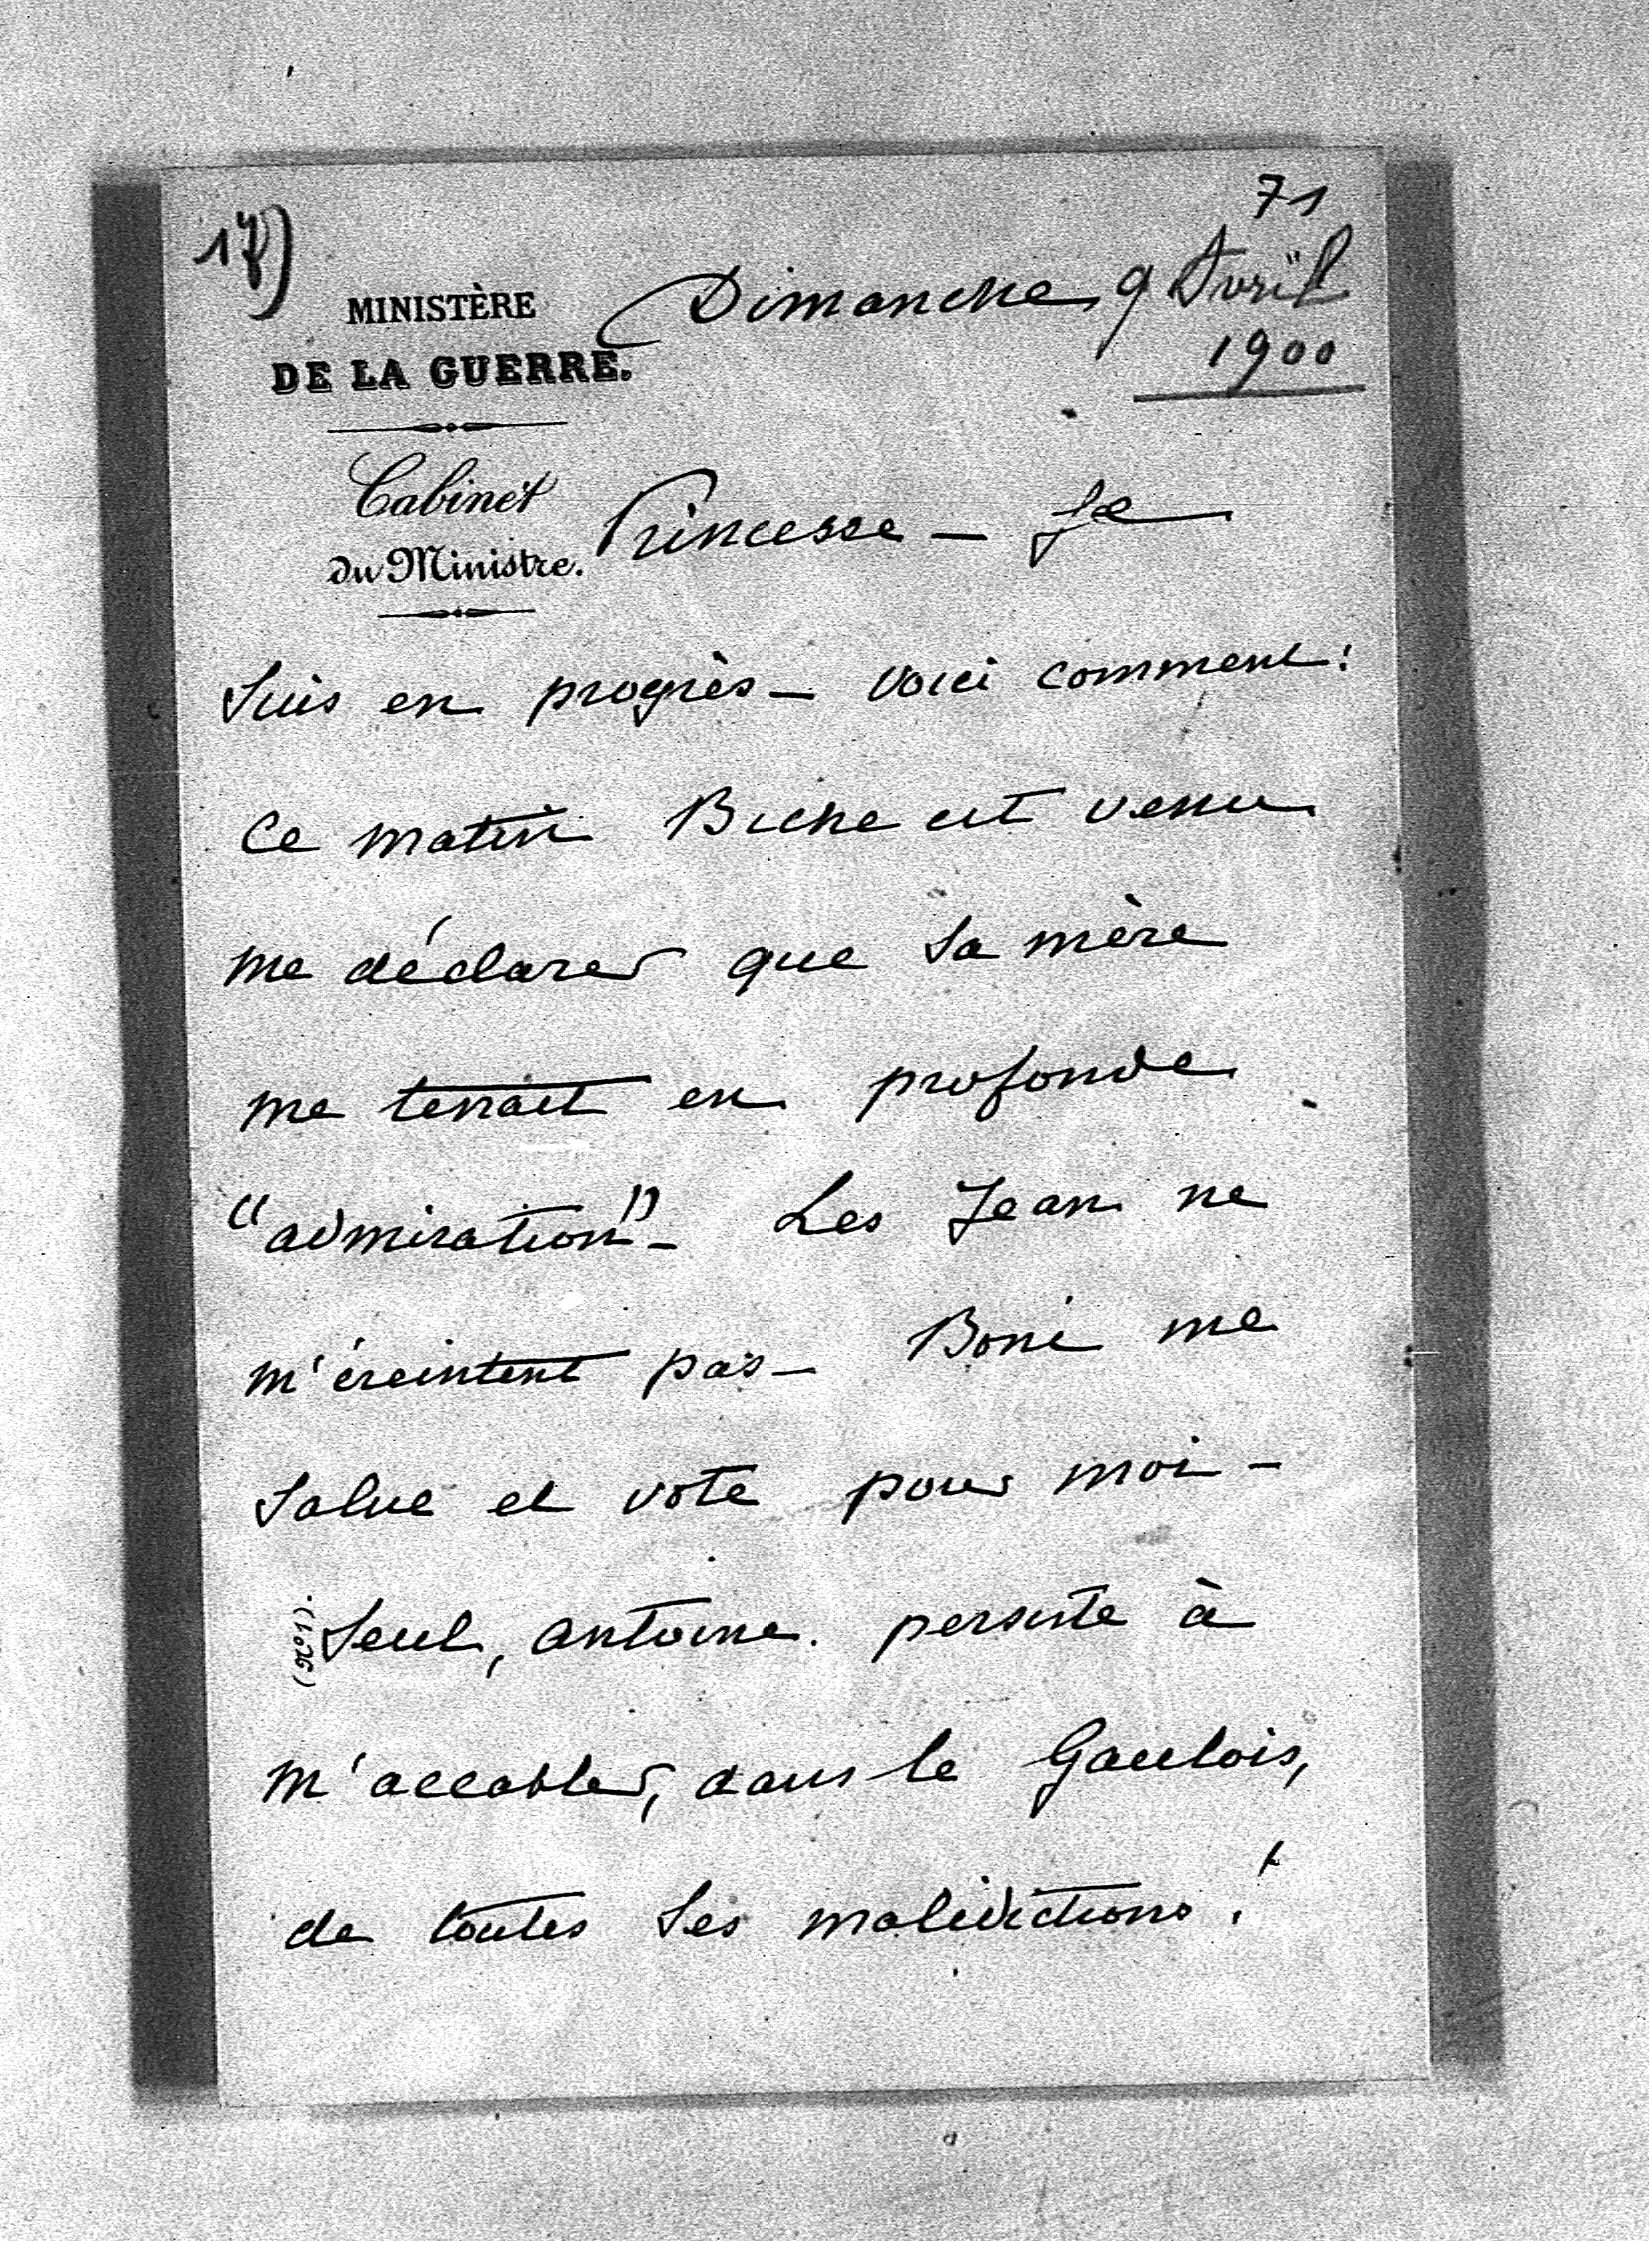 71
17)
Dimanche 9 Avril
1900
MINISTÈRE
DE LA GUERRE.
Cabinet
du Ministre.
Princesse — Je
suis en progrès — voici comment :
Ce matin Biche est venu
me déclarer que sa mère
me tenait en profonde
"admiration" — Les Jean ne
m'éreintent pas — Boni me
salue et vote pour moi —
(No 1).
Seul, Antoine persiste à
m'accabler, dans le Gaulois,
de toutes ses malédictions !